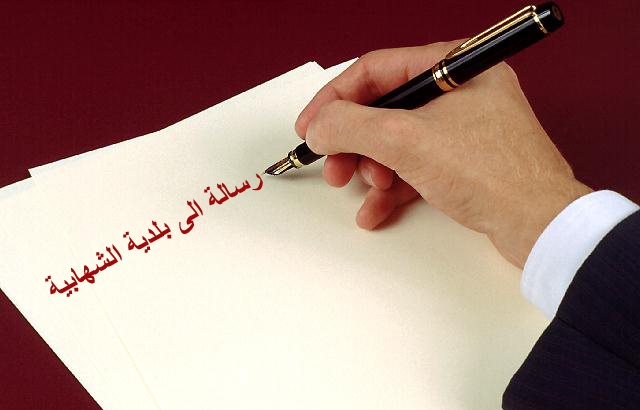 رسالة الى بلدية الشهابية